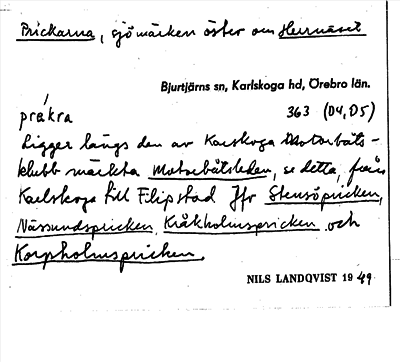 Prickarna, sjömärken öster om Herrnäset
Bjurtjärns sn, Karlskoga hd, Örebro län.
prákra 363 (D4, D5)
Ligger längs den av Karlskoga Motorbåts-
klubb märkta Motorbåtsleden, se detta, från
Karlskoga till Filipstad Jfr Stensöpricken,
Nässundspricken, Kråkholmspricken och
Korpholmspricken.
NILS LANDQVIST 1949